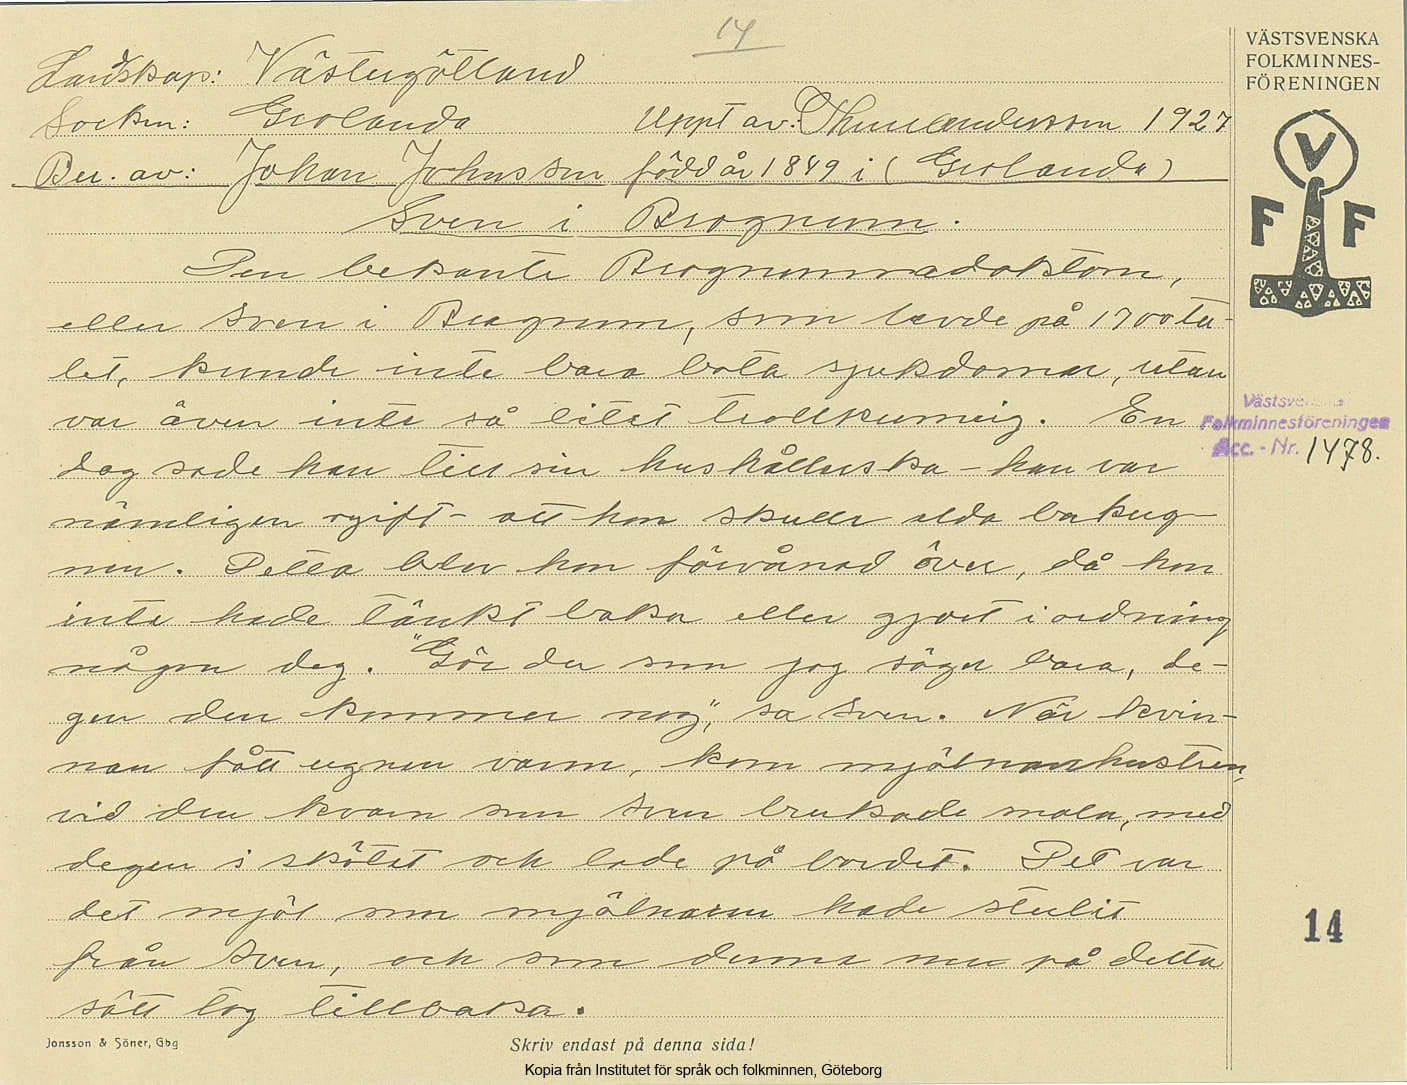 14
VÄSTSVENSKA
FOLKMINNES-
FÖRENINGEN
Landskap: Västergötland
Socken: Grolanda Uppt av: Andersson 1927
Ber. av: Johan Johansson född år 1849 i (Grolanda)
Sven i Brogrum.
Den bekante Brogrumradoktorn,
eller Sven i Brogrum, som levde på 1700 ta-
let, kunde inte bara bota sjukdomar, utan
var även inte så litet trollkunnig. En
dag sade han till sin hushållerska – han var
nämligen ogift – att hon skulle elda bakug-
nen. Detta blev hon förvånad över, då hon
inte hade tänkt baka eller gjort i ordning
någon deg. "Gör du som jag säger bara, de-
gen den kommer nog", sa Sven. När kvin-
nan fått ugnen varm, kom mjölnarhustrun,
vid den kvarn som Sven brukade mala, med
degen i skötet och lade på bordet. Det var
det mjöl som mjölnaren hade stulit
från Sven, och som denna nu på detta
sätt tog tillbaka.
V
F F
Västsvenska
Folkminnesföreningen
Acc. - Nr. 1478.
14
Jonsson & Söner, Gbg
Skriv endast på denna sida!
Kopia från Institutet för språk och folkminnen, Göteborg